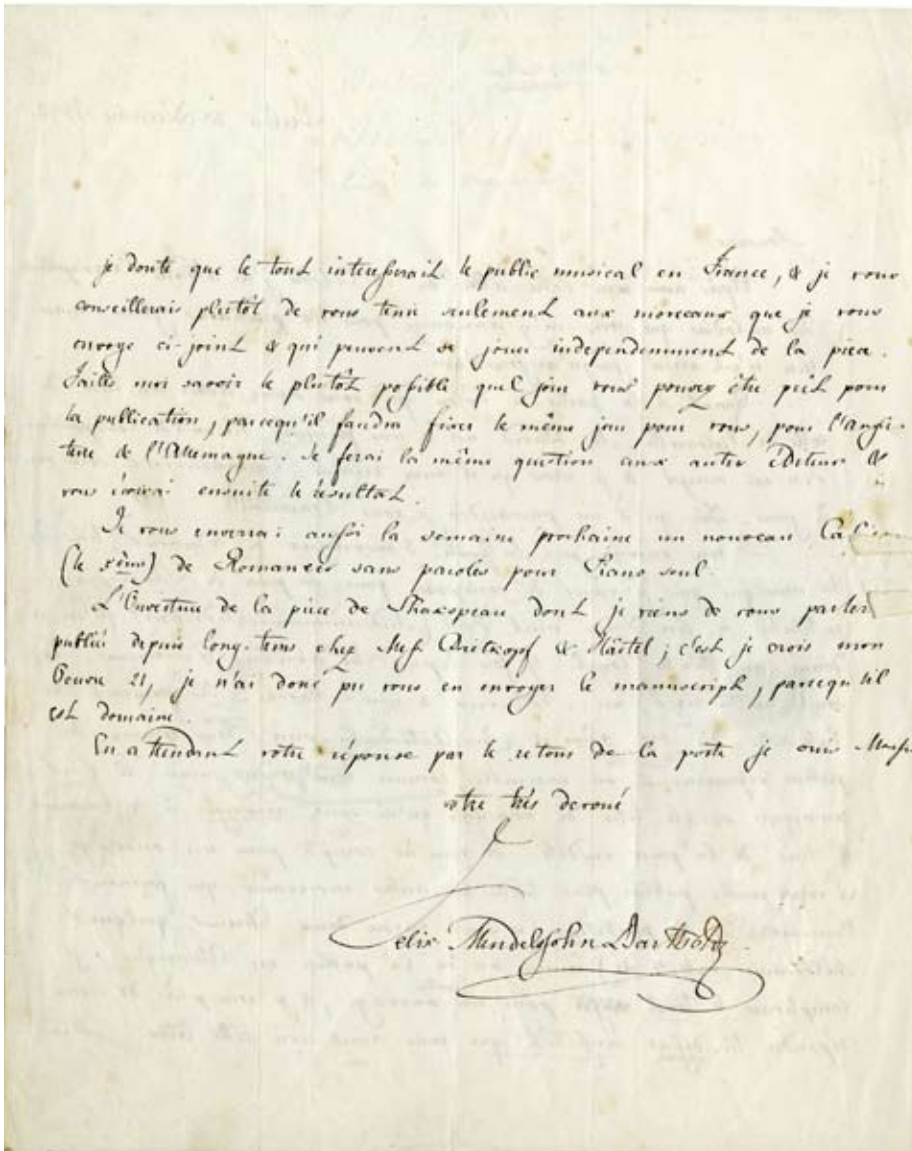 je doute que le tout interesserait le public musical en France, & je vous
conseillerais plutôt de vous tenir seulement aux morceaux que je vous
envoye ci-joint & qui peuvent se jouer independemment de la pièce.
Faites moi savoir le plutôt possible quel jour vous pouvez être prêt pour
la publication, parcequ'il faudra fixer le même jour pour vous, pour l'Angle-
terre & l'Allemagne. Je ferai la même question aux autres Editeurs &
vous ensuite le résultat.
Je vous enverrai aussi la semaine prochaine un nouveau
(le ) de Romances sans paroles pour Piano seul.
L'Ouverture de la pièce de Shakspeare dont je viens de vous parler
publiée depuis long-tems chez Mess. Breitkopf & Härtel; c'est je crois mon
Oeuvre 21, je n'ai donc pu vous en envoyer le manuscript, parcequ'il
est domaine.
En attendant votre réponse par le retour de la poste je suis
votre très devoué
Felix Mendelssohn Bartholdy